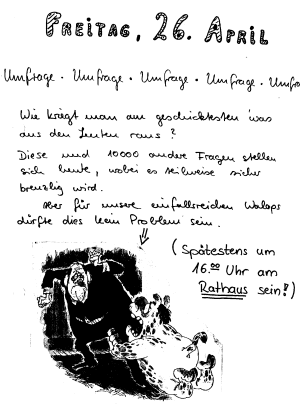 FREITAG, 26. APRIL
Umfrage · Umfrage · Umfrage · Umfrage · Umfra
Wie krägt man am geschicktesten was
aus den Leuten raus?
Diese und 10000 andere Fragen stellen
sich heute, wobei es teilweise sicher
brenzlig wird.
Aber für unsere einfallsreichen
dürfte dies kein Problem sein.
(Spätestens um
16.00 Uhr am
Rathaus sein!)